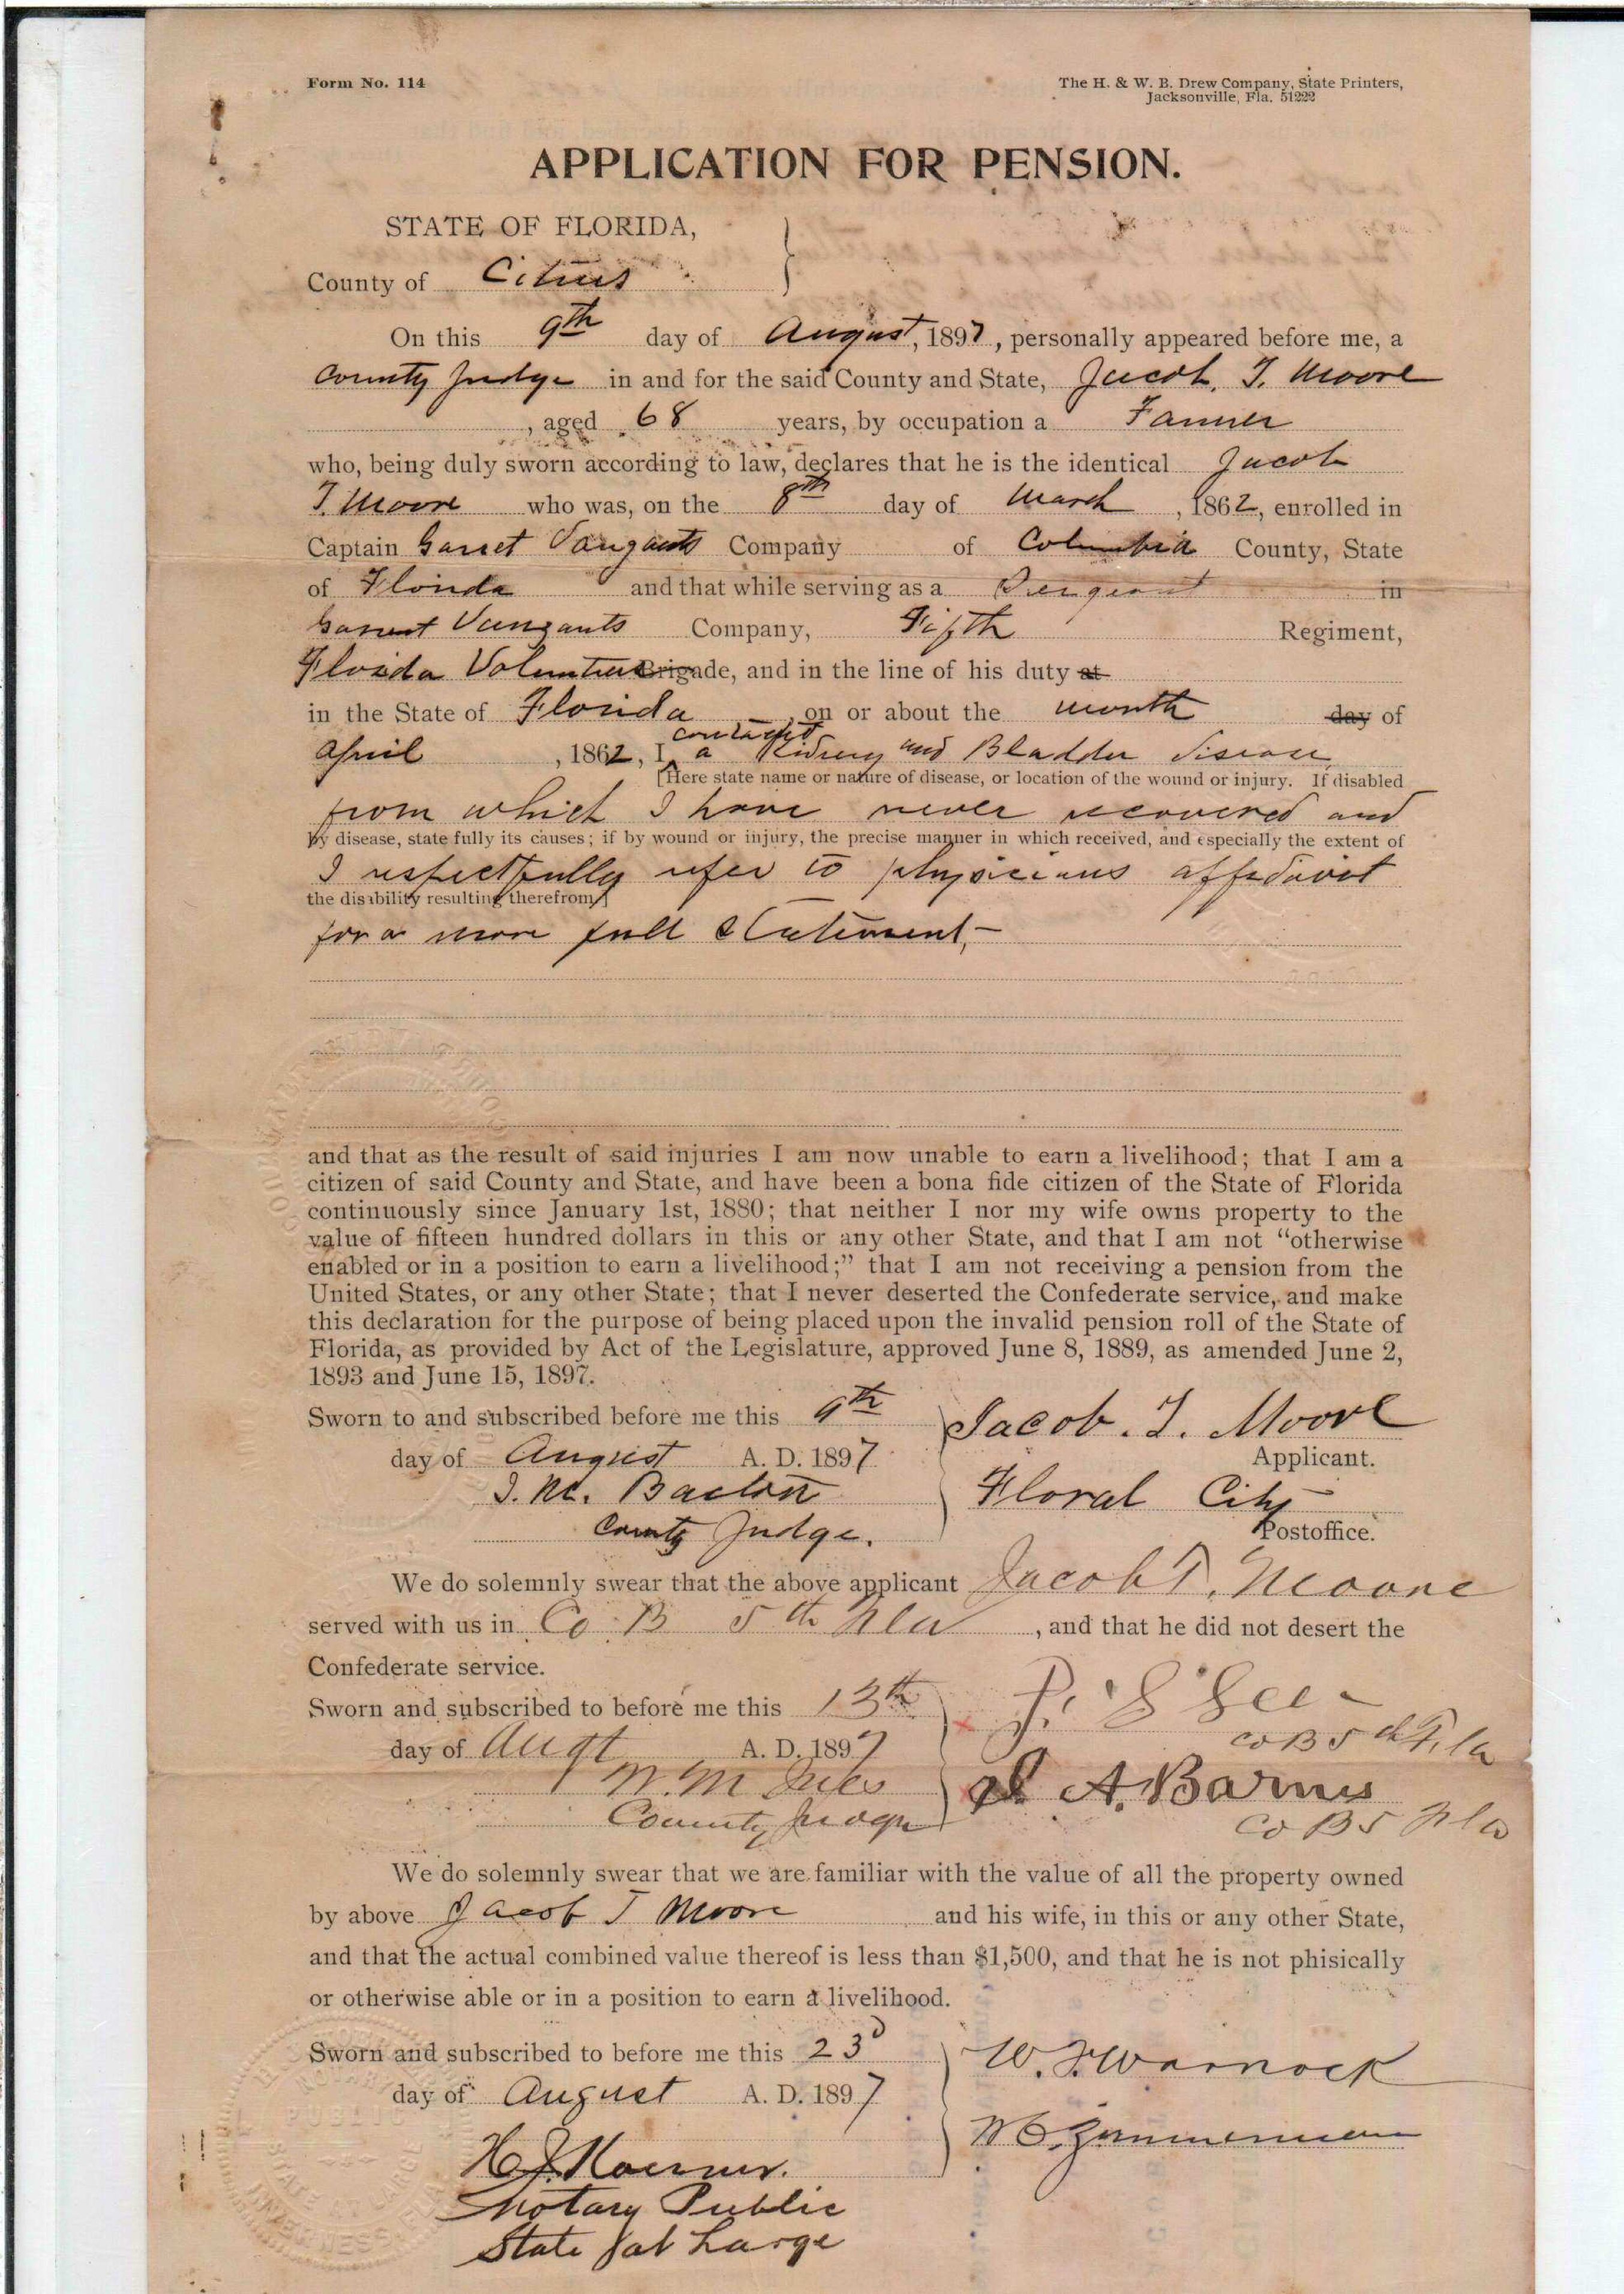 Form No. 114
The H. & W. B. Drew Company, State Printers,
Jacksonville, Fla. 51222
APPLICATION FOR PENSION.
STATE OF FLORIDA,
County of Citrus
On this 9th day of August, 1897, personally appeared before me, a
County Judge in and for the said County and State, Jacob. T. Moore
, aged 68 years, by occupation a Farmer
who, being duly sworn according to law, declares that he is the identical Jacob
T. Moore who was, on the 8th day of March, 1862, enrolled in
Captain Garret Vanzants Company of Columbia County, State
of Florida and that while serving as a Sergeant in
Garret Vanzants Company, Fifth Regiment,
Florida Volunteer Brigade, and in the line of his duty at
in the State of Florida, on or about the month day of
contracted
April, 1862, I a Kidney and Bladder disease
[Here state name or nature of disease, or location of the wound or injury. If disabled
from which I have never recovered and
by disease, state fully its causes; if by wound or injury, the precise manner in which received, and especially the extent of
I respectfully refer to physicians affidavit
the disability resulting therefrom]
for a more full statement,-
and that as the result of said injuries I am now unable to earn a livelihood; that I am a
citizen of said County and State, and have been a bona fide citizen of the State of Florida
continuously since January 1st, 1880; that neither I nor my wife owns property to the
value of fifteen hundred dollars in this or any other State, and that I am not "otherwise
enabled or in a position to earn a livelihood;" that I am not receiving a pension from the
United States, or any other State; that I never deserted the Confederate service, and make
this declaration for the purpose of being placed upon the invalid pension roll of the State of
Florida, as provided by Act of the Legislature, approved June 8, 1889, as amended June 2,
1893 and June 15, 1897.
Sworn to and subscribed before me this 9th
Jacob. T. Moore
day of August A. D. 1897
Applicant.
Floral City
County Judge.
Postoffice.
We do solemnly swear that the above applicant Jacob T. Moore
served with us in Co B 5th Fla, and that he did not desert the
Confederate service.
Sworn and subscribed to before me this 13th
Co B 5th Fla
day of Augt A. D. 1897
A. Barnes
County Judge
Co B 5 Fla
We do solemnly swear that we are familiar with the value of all the property owned
by above Jacob T Moore and his wife, in this or any other State,
and that the actual combined value thereof is less than $1,500, and that he is not phisically
or otherwise able or in a position to earn a livelihood.
Sworn and subscribed to before me this 23d
W. F. Warnock
day of August A. D. 1897
Zimmerman
Notary Public
State at Large